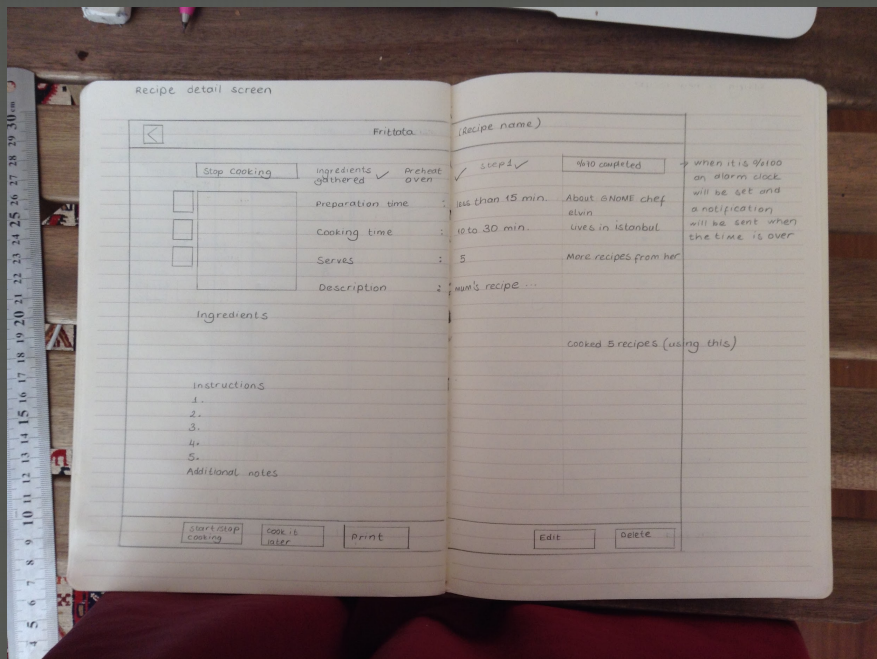 Recipe detail screen
<
Frittata (Recipe name)
Stop Cooking
Ingredients gathered ✓
Preheat oven ✓
Step1 ✓
%10 completed
→ when it is %100
an alarm clock
will be set and
a notification
will be sent when
the time is over
Preparation time : less than 15 min.
Cooking time : 10 to 30 min.
Serves : 5
Description : mum's recipe ...
About GNOME chef
elvin
lives in istanbul
More recipes from her
cooked 5 recipes (using this)
Ingredients
Instructions
1.
2.
3.
4.
5.
Additional notes
Start/stop
cooking
Cook it
later
Print
Edit
Delete
30 cm
29
28
27
26
25
24
23
22
21
20
19
18
17
16
15
14
13
12
11
10
9
8
7
6
5
4